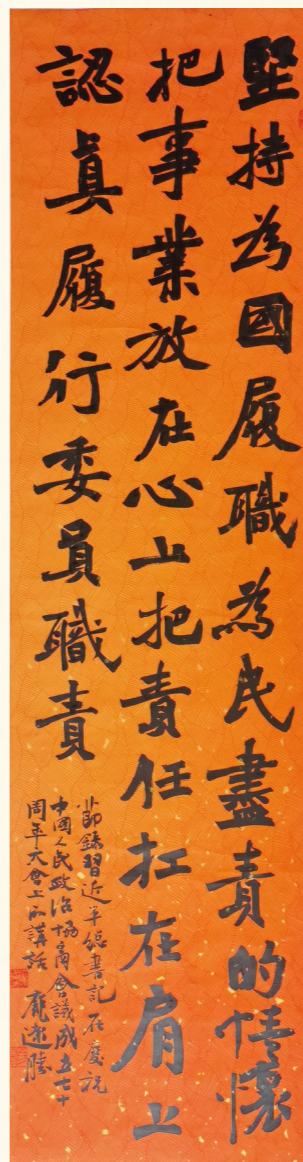 堅持為國履職為民盡責的情懷
把事業放在心上把責任扛在肩上
認真履行委員職責
節錄習近平總書記在慶祝
中國人民政治協商會議成立七十
周年大會上的講話 龐遡勝